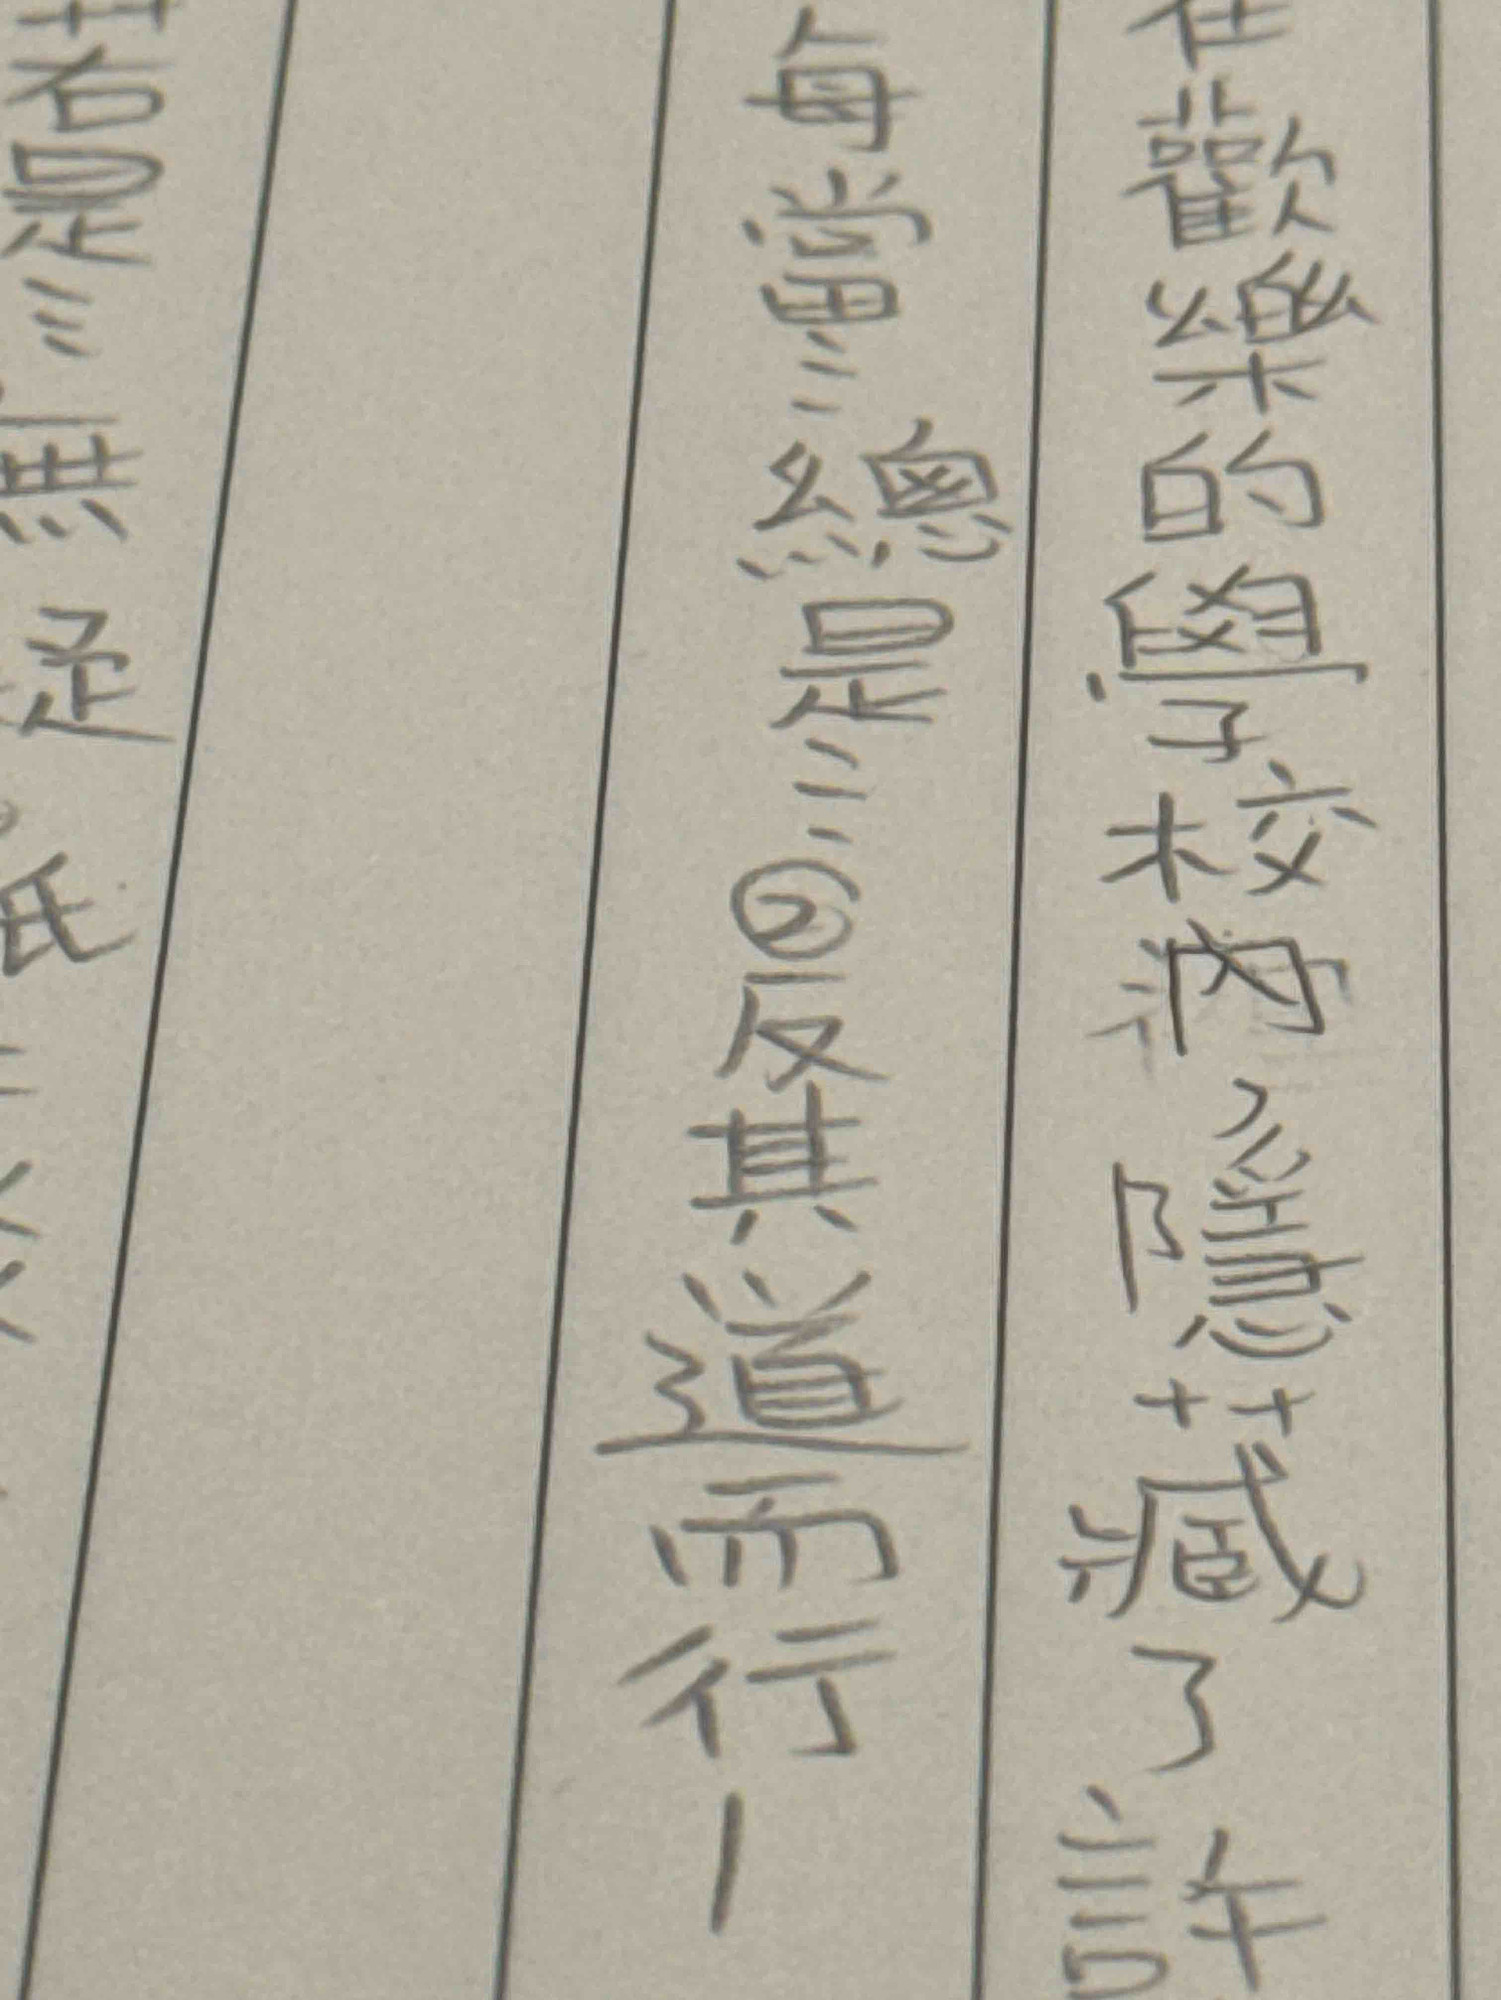 在歡樂的學校內隱藏了許
每當……總是……②反其道而行—
若是……無疑。